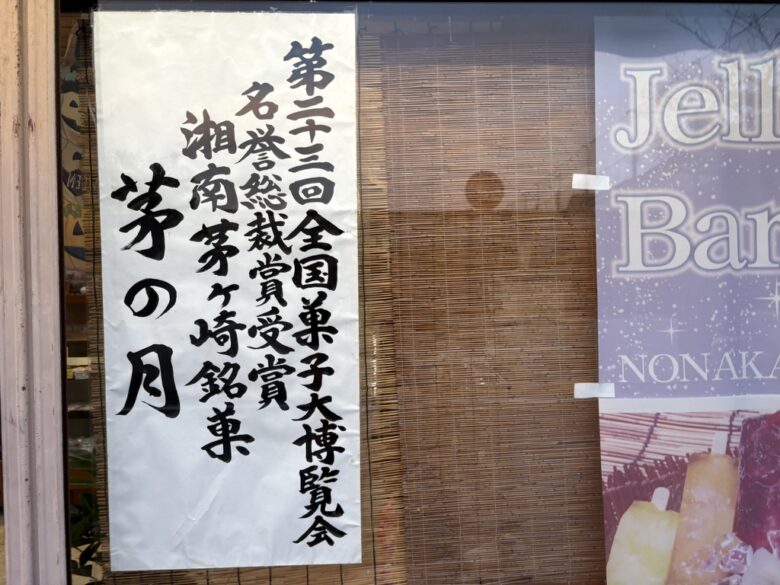 第二十三回全国菓子大博覧会
名誉総裁賞受賞
湘南茅ヶ崎銘菓
茅の月
Jell
Bar
NONAKA